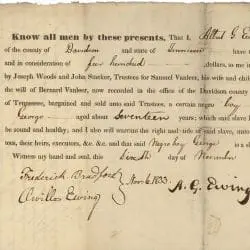 Know all men by these presents, That I, Albert G. E
of the county of Davidson and state of Tennessee
and in consideration of four hundred dollars, to me in
by Joseph Woods and John Stacker, Trustees for Samuel Vanleer, his wife and child
the will of Bernard Vanleer, now recorded in the office of the Davidson county
of Tennessee, bargained and sold unto said Trustees, a certain negro boy
George aged about Seventeen years; which said slave I
be sound and healthy; and I also will warrant the right and title of said slave, unto
tees, their heirs, executors, &c. &c. and that said Negro boy George is a
Witness my hand and seal, this Sixth day of November
Frederick Bradford
Nov. 6. 1833.
A. G. Ewing
Orville Ewing